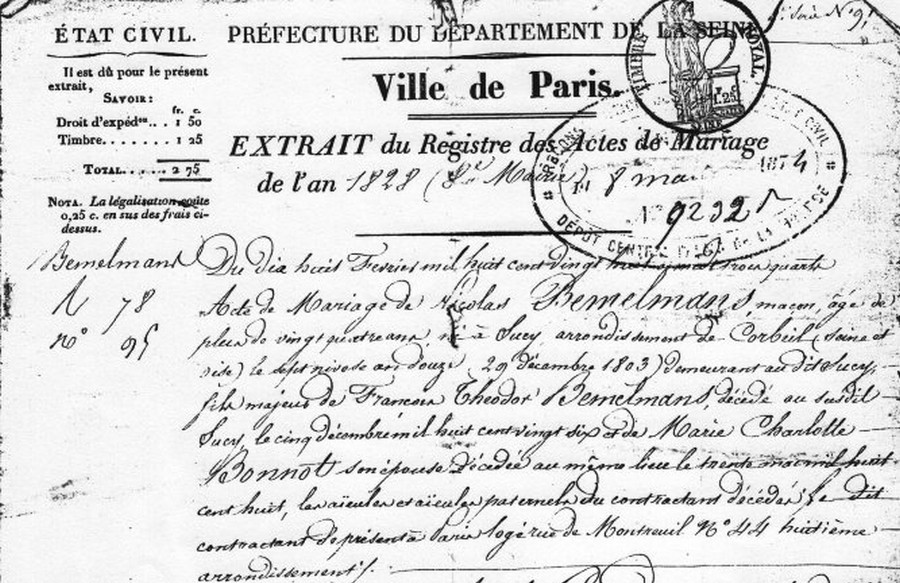 ÉTAT CIVIL.
Il est dû pour le présent
extrait,
SAVOIR:
fr. c.
Droit d'expéd.on.. 1 50
Timbre....... 1 25
TOTAL..... 2 75
NOTA. La légalisation coûte
0,25 c. en sus des frais ci-
dessus.
Bemelmans
N 78
n° 95
PRÉFECTURE DU DÉPARTEMENT DE LA SEINE
Ville de Paris.
EXTRAIT du Registre des Actes de Mariage
de l'an 1828 (8e Mairie)
TIMBRE ROYAL
1.25
SEINE
8 mai 1874
N° 9232
DÉPÔT CENTRAL DE LA
Du dix huit Fevrier mil huit cent vingt huit à trois quarts
Acte de Mariage de Nicolas Bemelmans, maçon, âgé de
plus de vingt quatre ans, né à Sucy, arrondissement de Corbeil (Seine et
oise) le sept nivose an douze (29 décembre 1803) demeurant au dit Sucy,
fils majeur de Francois Theodor Bemelmans, décédé au susdit
Sucy, le cinq décembre mil huit cent vingt six et de Marie Charlotte
Bonnot son épouse décédée au même lieu le trente mai mil huit
cent huit, les aïeuls et aïeules paternels du contractant décédés; le dit
contractant de présent à Paris logé rue de Montreuil N° 44 huitième
arrondissement/.